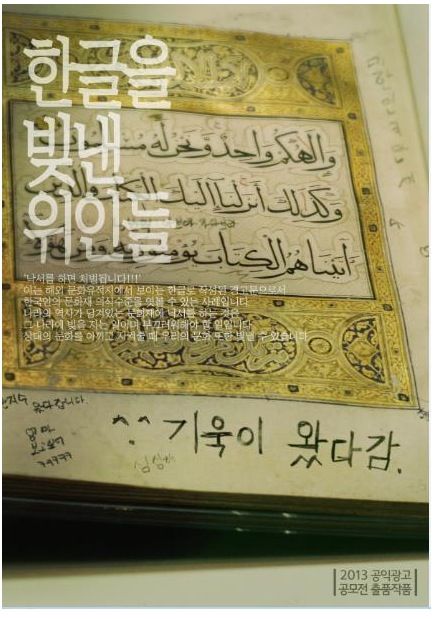 한글을
빛낸
위인들
وإلهكم واحد ونحن له
وكذلك أنزلنا إليك الكتاب فالذين
آتيناهم الكتاب يؤمنون به
'낙서를 하면 처벌됩니다!!!'
이는 해외 문화유적지에서 보이는 한글로 작성된 경고문으로서
한국인의 문화재 의식수준을 엿볼 수 있는 사례입니다
나라의 역사가 담겨있는 문화재에 낙서를 하는 것은
그 나라에 빚을 지는 일이며 부끄러워해야 할 일입니다.
상대의 문화를 아끼고 지켜줄 때 우리의 문화 또한 빛낼 수 있습니다.
왔다갑니다.
엄마
ㅋㅋㅋㅋㅋ
^^ 기욱이 왔다감.
2013 공익광고
공모전 출품작품